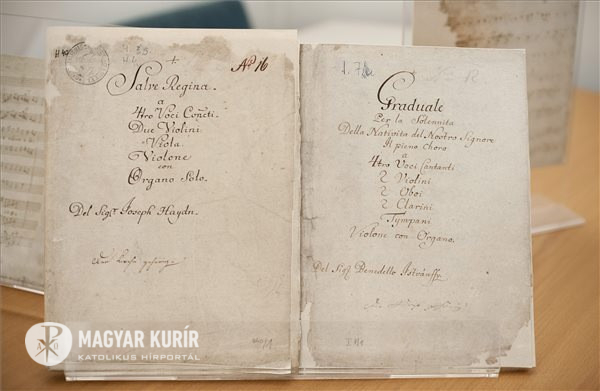 Nº 16
Salve Regina.
a
4tro Voci Conc̃ti.
Due Violini
Viola.
Violone
con
Organo Solo.
Del Sigr Joseph Haydn.
Graduale
Per la Solennita
Della Nativita del Nostro Signore
Il pieno Choro
a
4tro Voci Cantanti
2 Violini
2 Oboi
2 Clarini
Tympani
Violon con Organo.
Del Sigr Benedetto Istvánffy.
MAGYAR KURÍR
KATOLIKUS HÍRPORTÁL